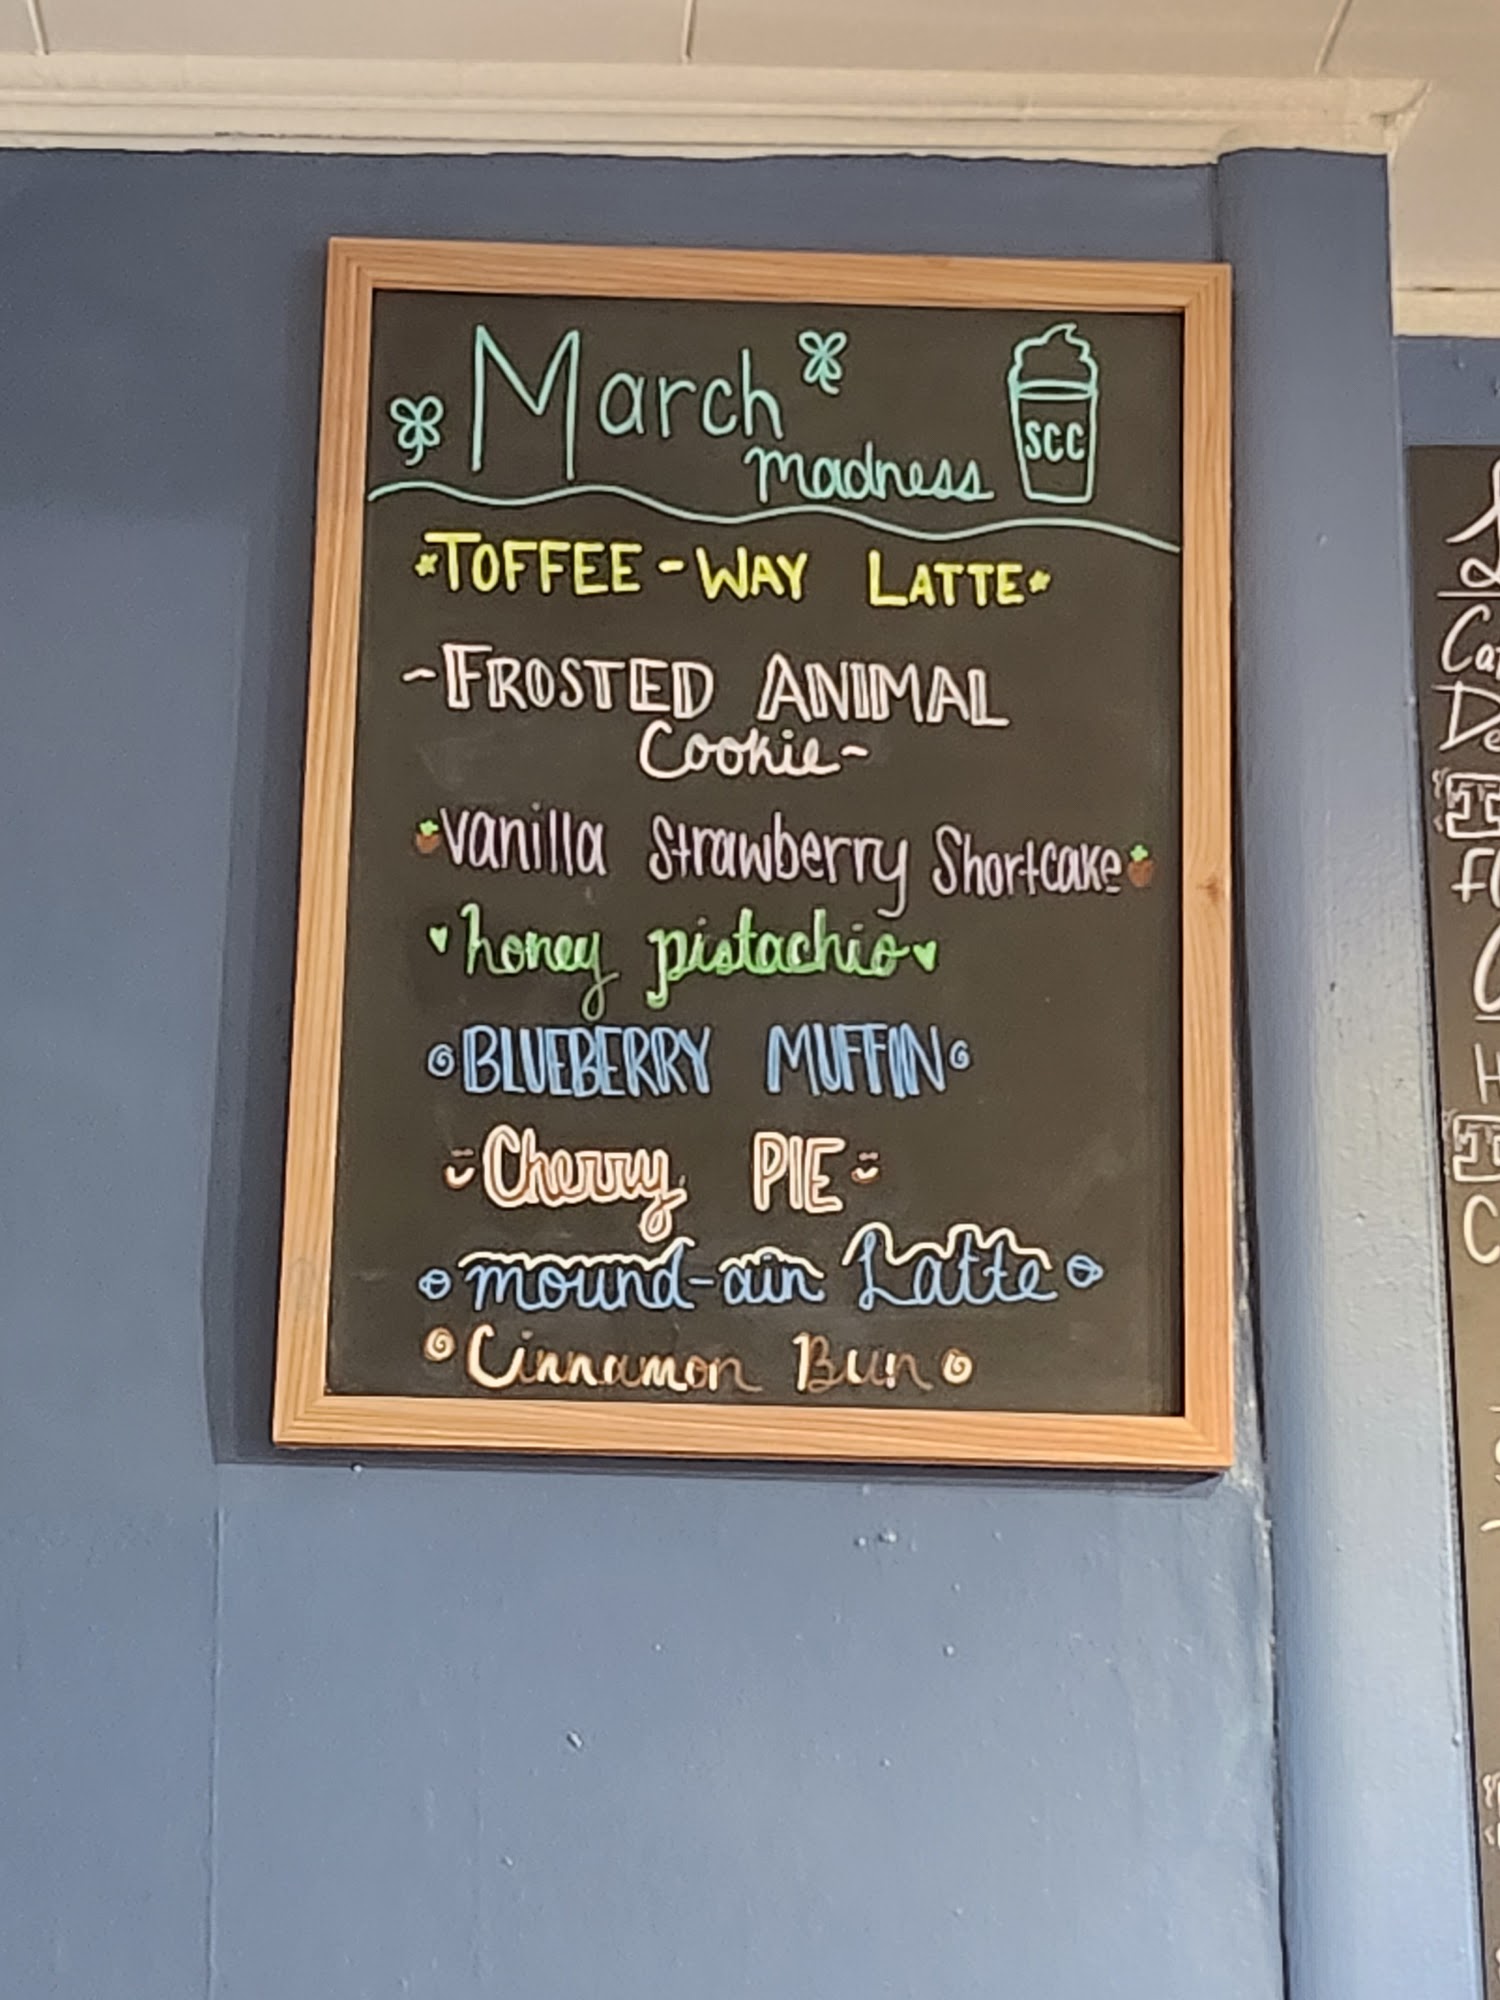 March
madness
SCC
TOFFEE-WAY LATTE
~FROSTED ANIMAL
Cookie~
Vanilla Strawberry Shortcake
honey pistachio
BLUEBERRY MUFFIN
Cherry PIE
mound-ain Latte
Cinnamon Bun